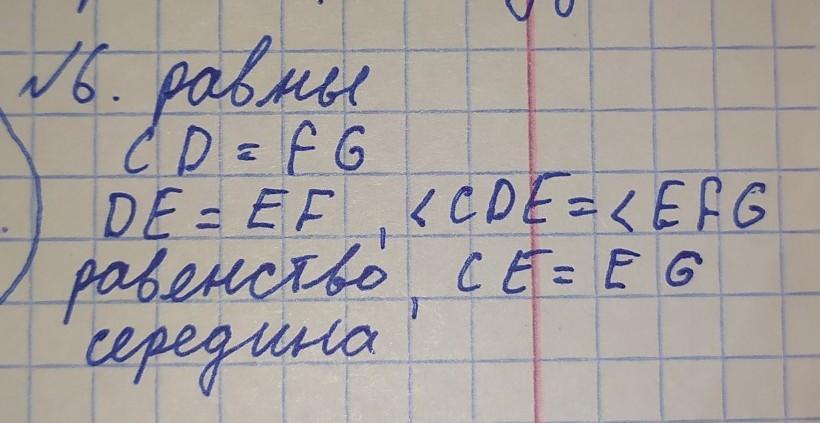 №6. равны
CD = FG
DE = EF, <CDE = <EFG
равенство, CE = EG
середина